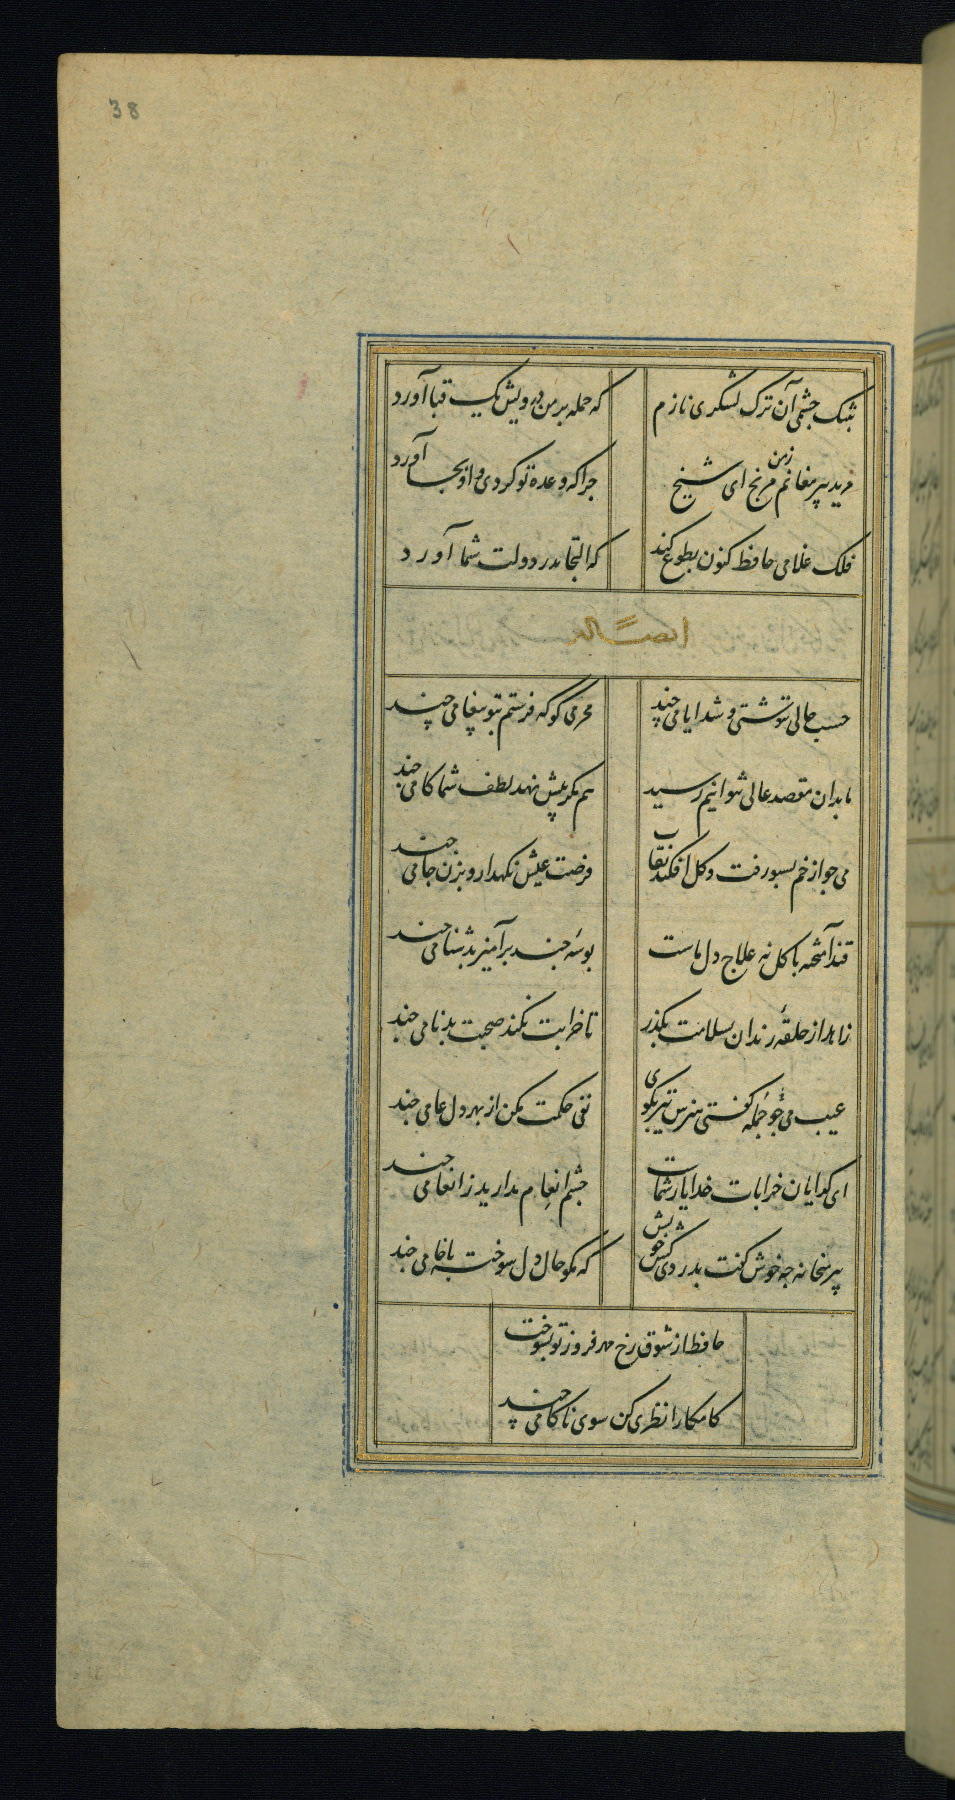 38
بتنک چشمی آن ترک لشکری نازم که حمله بر من درویش یک قبا آورد
مرید پیر مغانم ز من مرنج ای شیخ چرا که وعده تو کردی و او بجا آورد
فلک غلامی حافظ کنون بطوع کند که التجا بدر دولت شما آورد
ایضاً له
حسب حالی ننوشتی و شد ایامی چند محرمی کو که فرستم بتو پیغامی چند
ما بدان مقصد عالی نتوانیم رسید هم مکر پیش نهد لطف شما کامی چند
می چو از خم بسبو رفت و کل افکند نقاب فرصت عیش نکهدار و بزن جامی چند
قند آمیخته با کل نه علاج دل ماست بوسهٔ چند برآمیز بدشنامی چند
زاهد از حلقهٔ رندان بسلامت بکذر تا خرابت نکند صحبت بدنامی چند
عیب می جو جمله کفتی هنرش نیز بکوی نفی حکمت مکن از بهر دل عامی چند
ای کدایان خرابات خدا یار شماست چشم انعام مدارید ز انعامی چند
پیر میخانه چه خوش کفت بدردی کش خویش که مکو حال دل سوخته با خامی چند
حافظ از شوق رخ مهر فروز تو بسوخت
کامکارا نظری کن سوی ناکامی چند